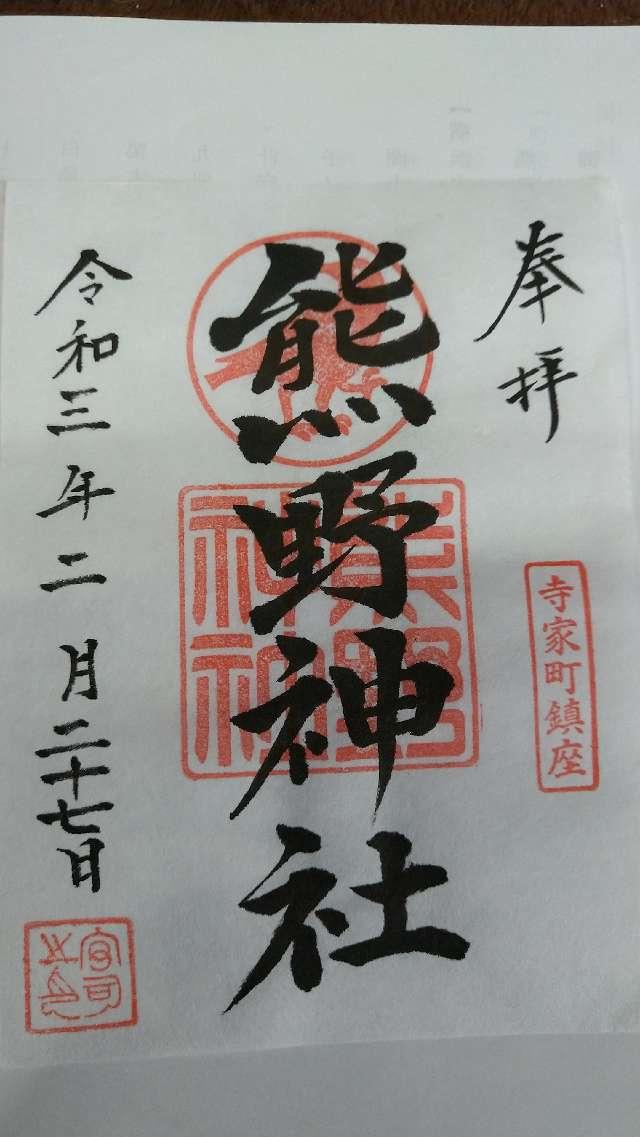 奉拝
寺家町鎮座
熊野神社
熊野
神社
令和三年二月二十七日
宮司
之印